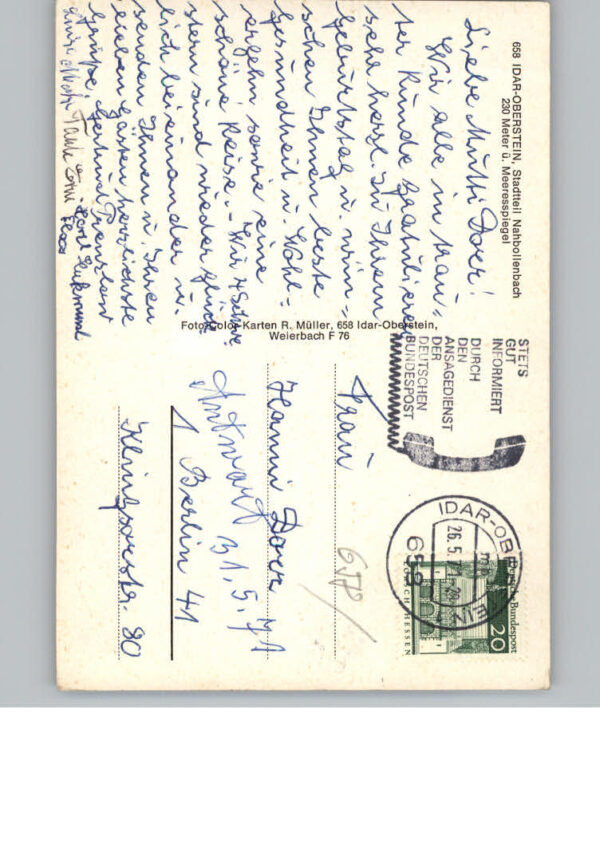 658 IDAR-OBERSTEIN, Stadtteil Nahbollenbach
230 Meter ü. Meeresspiegel
Liebe Mutti Doer!
Wir alle in trau-
ter Runde gratulieren
sehr herzl. zu Ihrem
Geburtstag u. wün-
schen Ihnen beste
Gesundheit u. Wohl-
ergehn sowie eine
schöne Reise. - Wir 4 Schwe
stern sind wieder glück
lich beieinander u.
senden Ihnen u. Ihren
lieben Gästen herzlichste
Grüße, Gertrud
Tante
Foto Color Karten R. Müller, 658 Idar-Oberstein,
Weierbach F 76
STETS
GUT
INFORMIERT
DURCH
DEN
ANSAGEDIENST
DER
DEUTSCHEN
BUNDESPOST
IDAR-OBERSTEIN
26.5.71
658
Deutsche Bundespost
20
LORSCH/HESSEN
Frau
Hanni Doer
Antwort 31.5.71
1 Berlin 41
Klingsorstr. 80